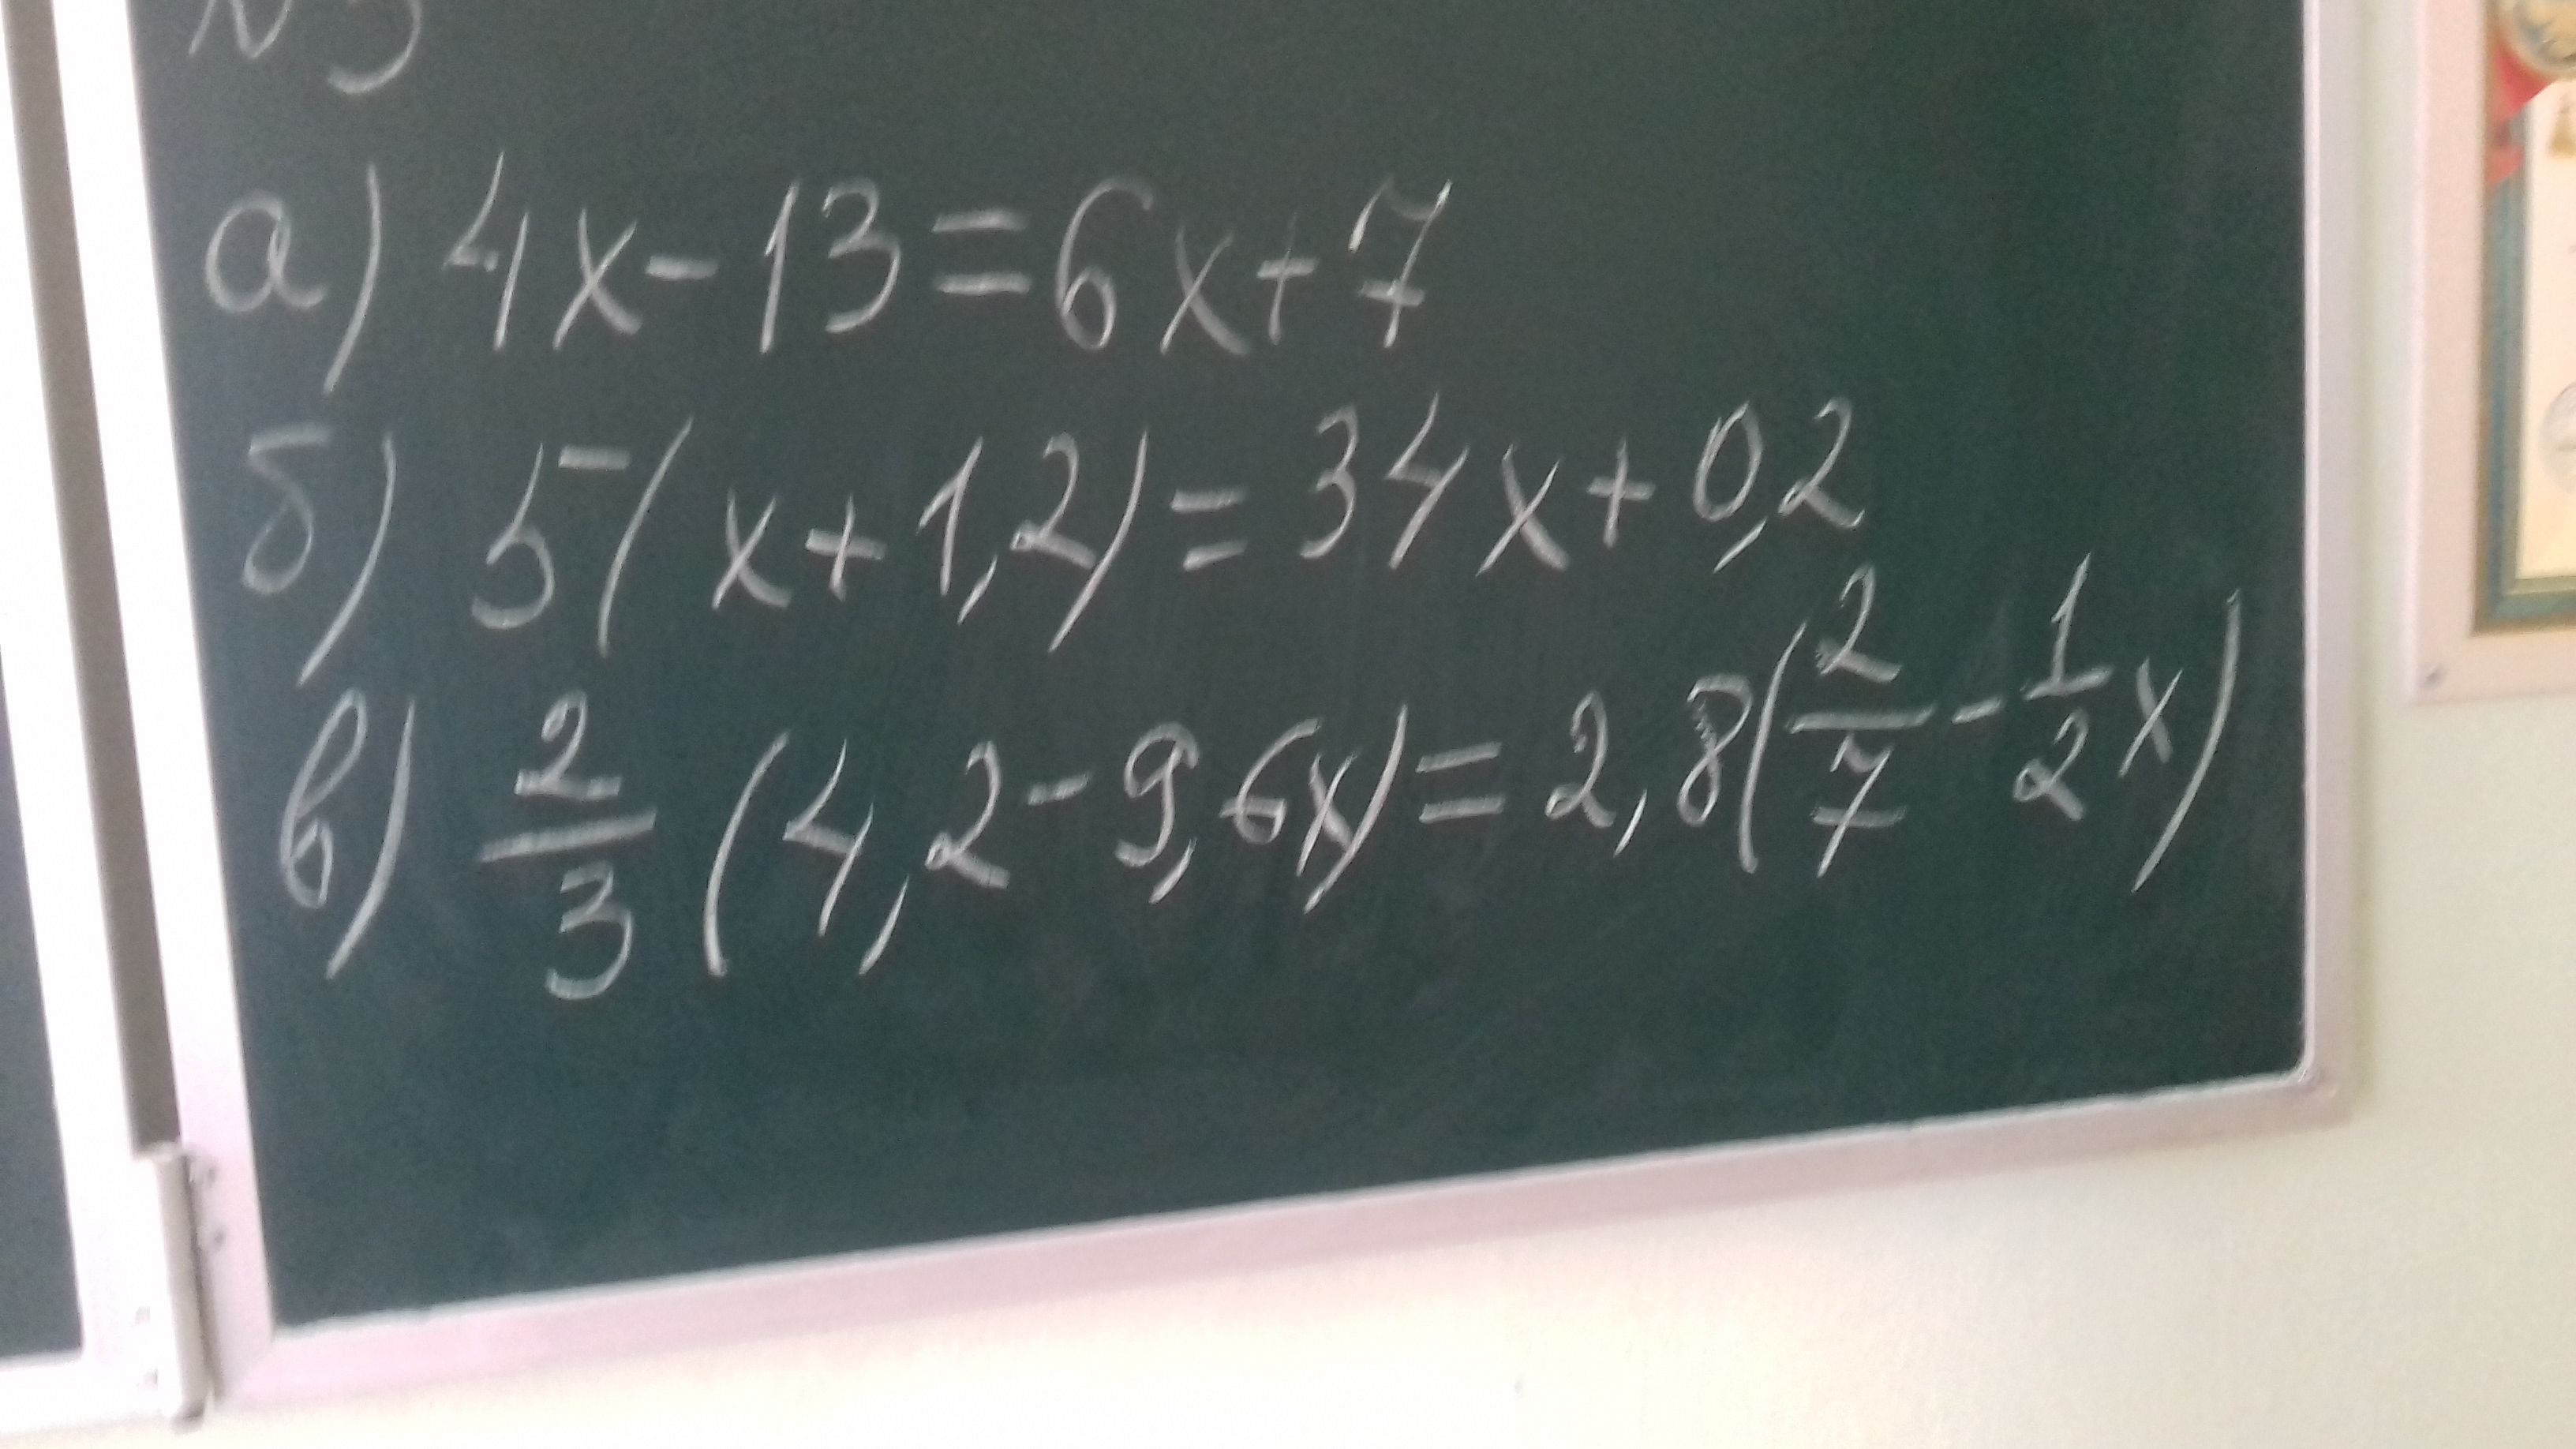 №3
а) 4x-13=6x+7
б) 5(x+1,2)=34x+0,2
в) 2/3 (4,2-9,6x)=2,8(2/7-1/2x)